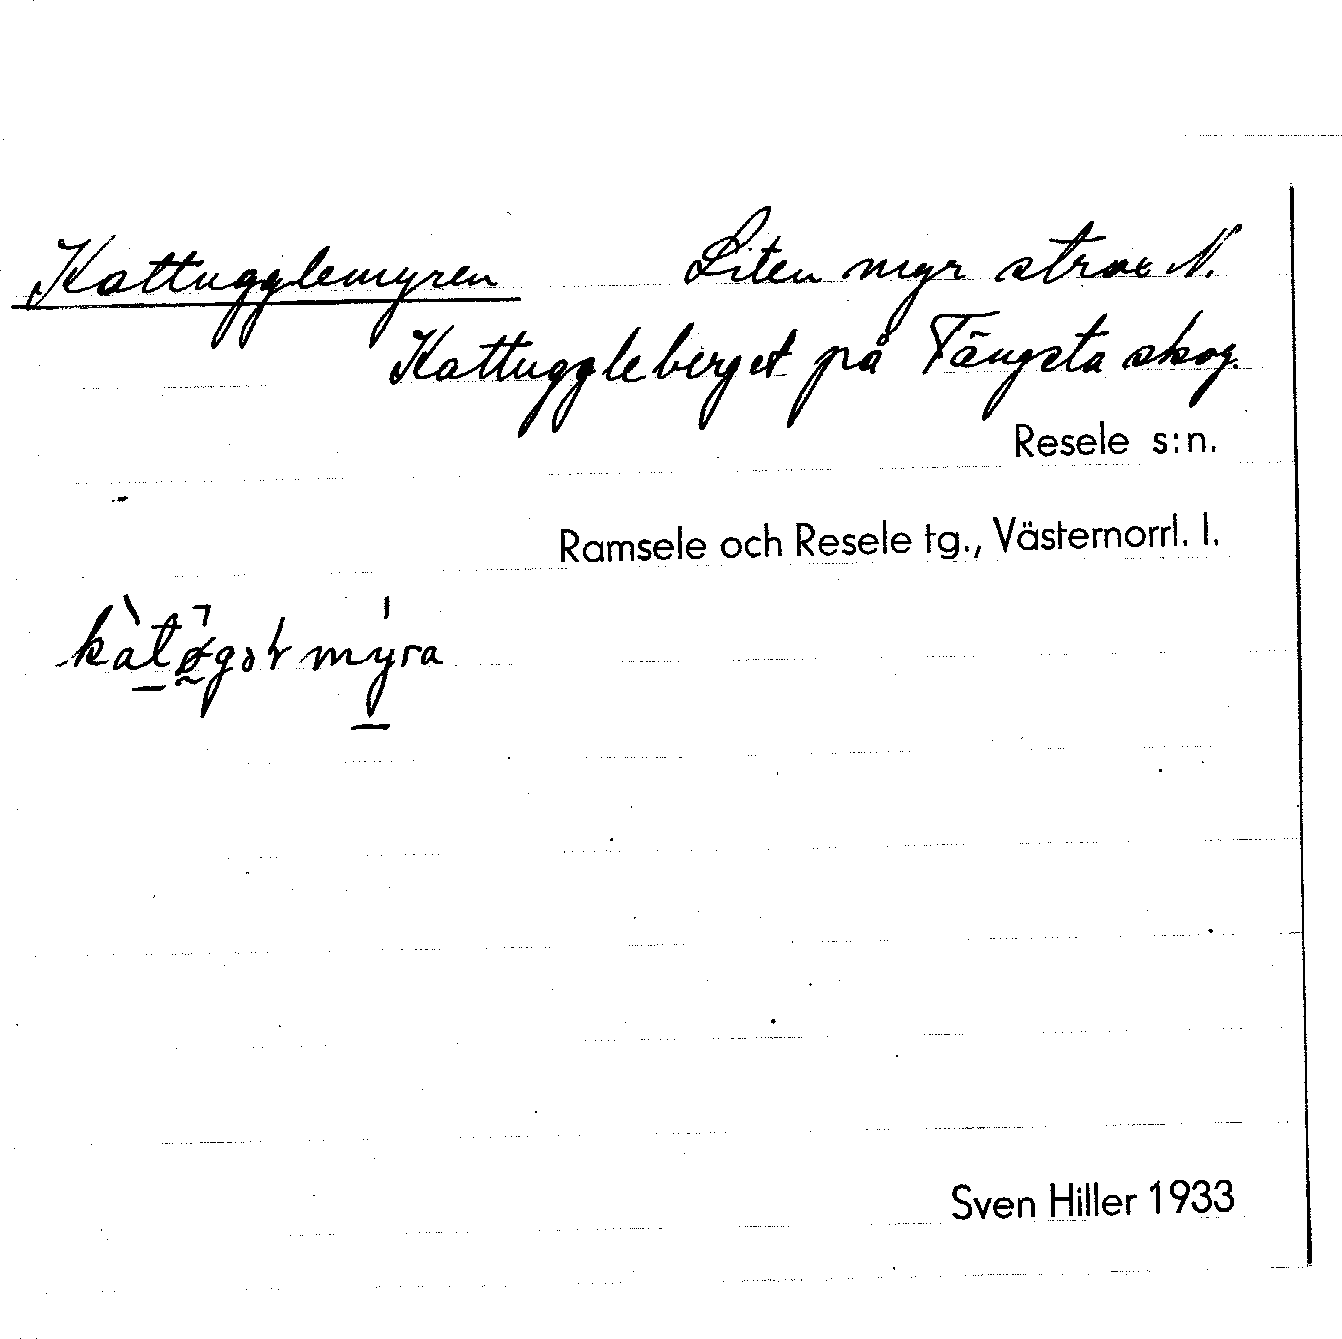 Kattugglemyren Liten myr strax N.
Kattuggleberget på Tängsta skog.
Resele s:n.
Ramsele och Resele tg., Västernorrl. l.
Sven Hiller 1933